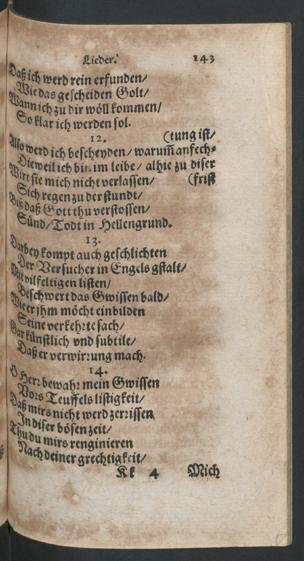 Lieder. 143
Daß ich werd rein erfunden/
Wie das gescheiden Golt/
Wann ich zu dir wöll kommen/
So klar ich werden sol.
12. (tung ist/
Also werd ich bescheyden / warum̃ anfech-
Dieweil ich bin im leibe / alhie zu diser
Wirt sie mich nicht verlassen/ (frist
Sich regen zu der stundt/
Biß daß Gott thu verstossen/
Sünd/ Todt in Hellengrund.
13.
Darbey kompt auch geschlichten
Der Versucher in Engels gstalt/
Mit vilfeltigen listen/
Beschwert das Gwissen bald/
Wie er jhm möcht einbilden
Seine verkehrte sach/
Gar künstlich vnd subtile/
Daß er verwirrung mach.
14.
O Herr bewahr mein Gwissen
Vors Teuffels listigkeit/
Daß mirs nicht werd zerrissen
In diser bösen zeit/
Thu du mirs renginieren
Nach deiner grechtigkeit/
Kk 4 Mich